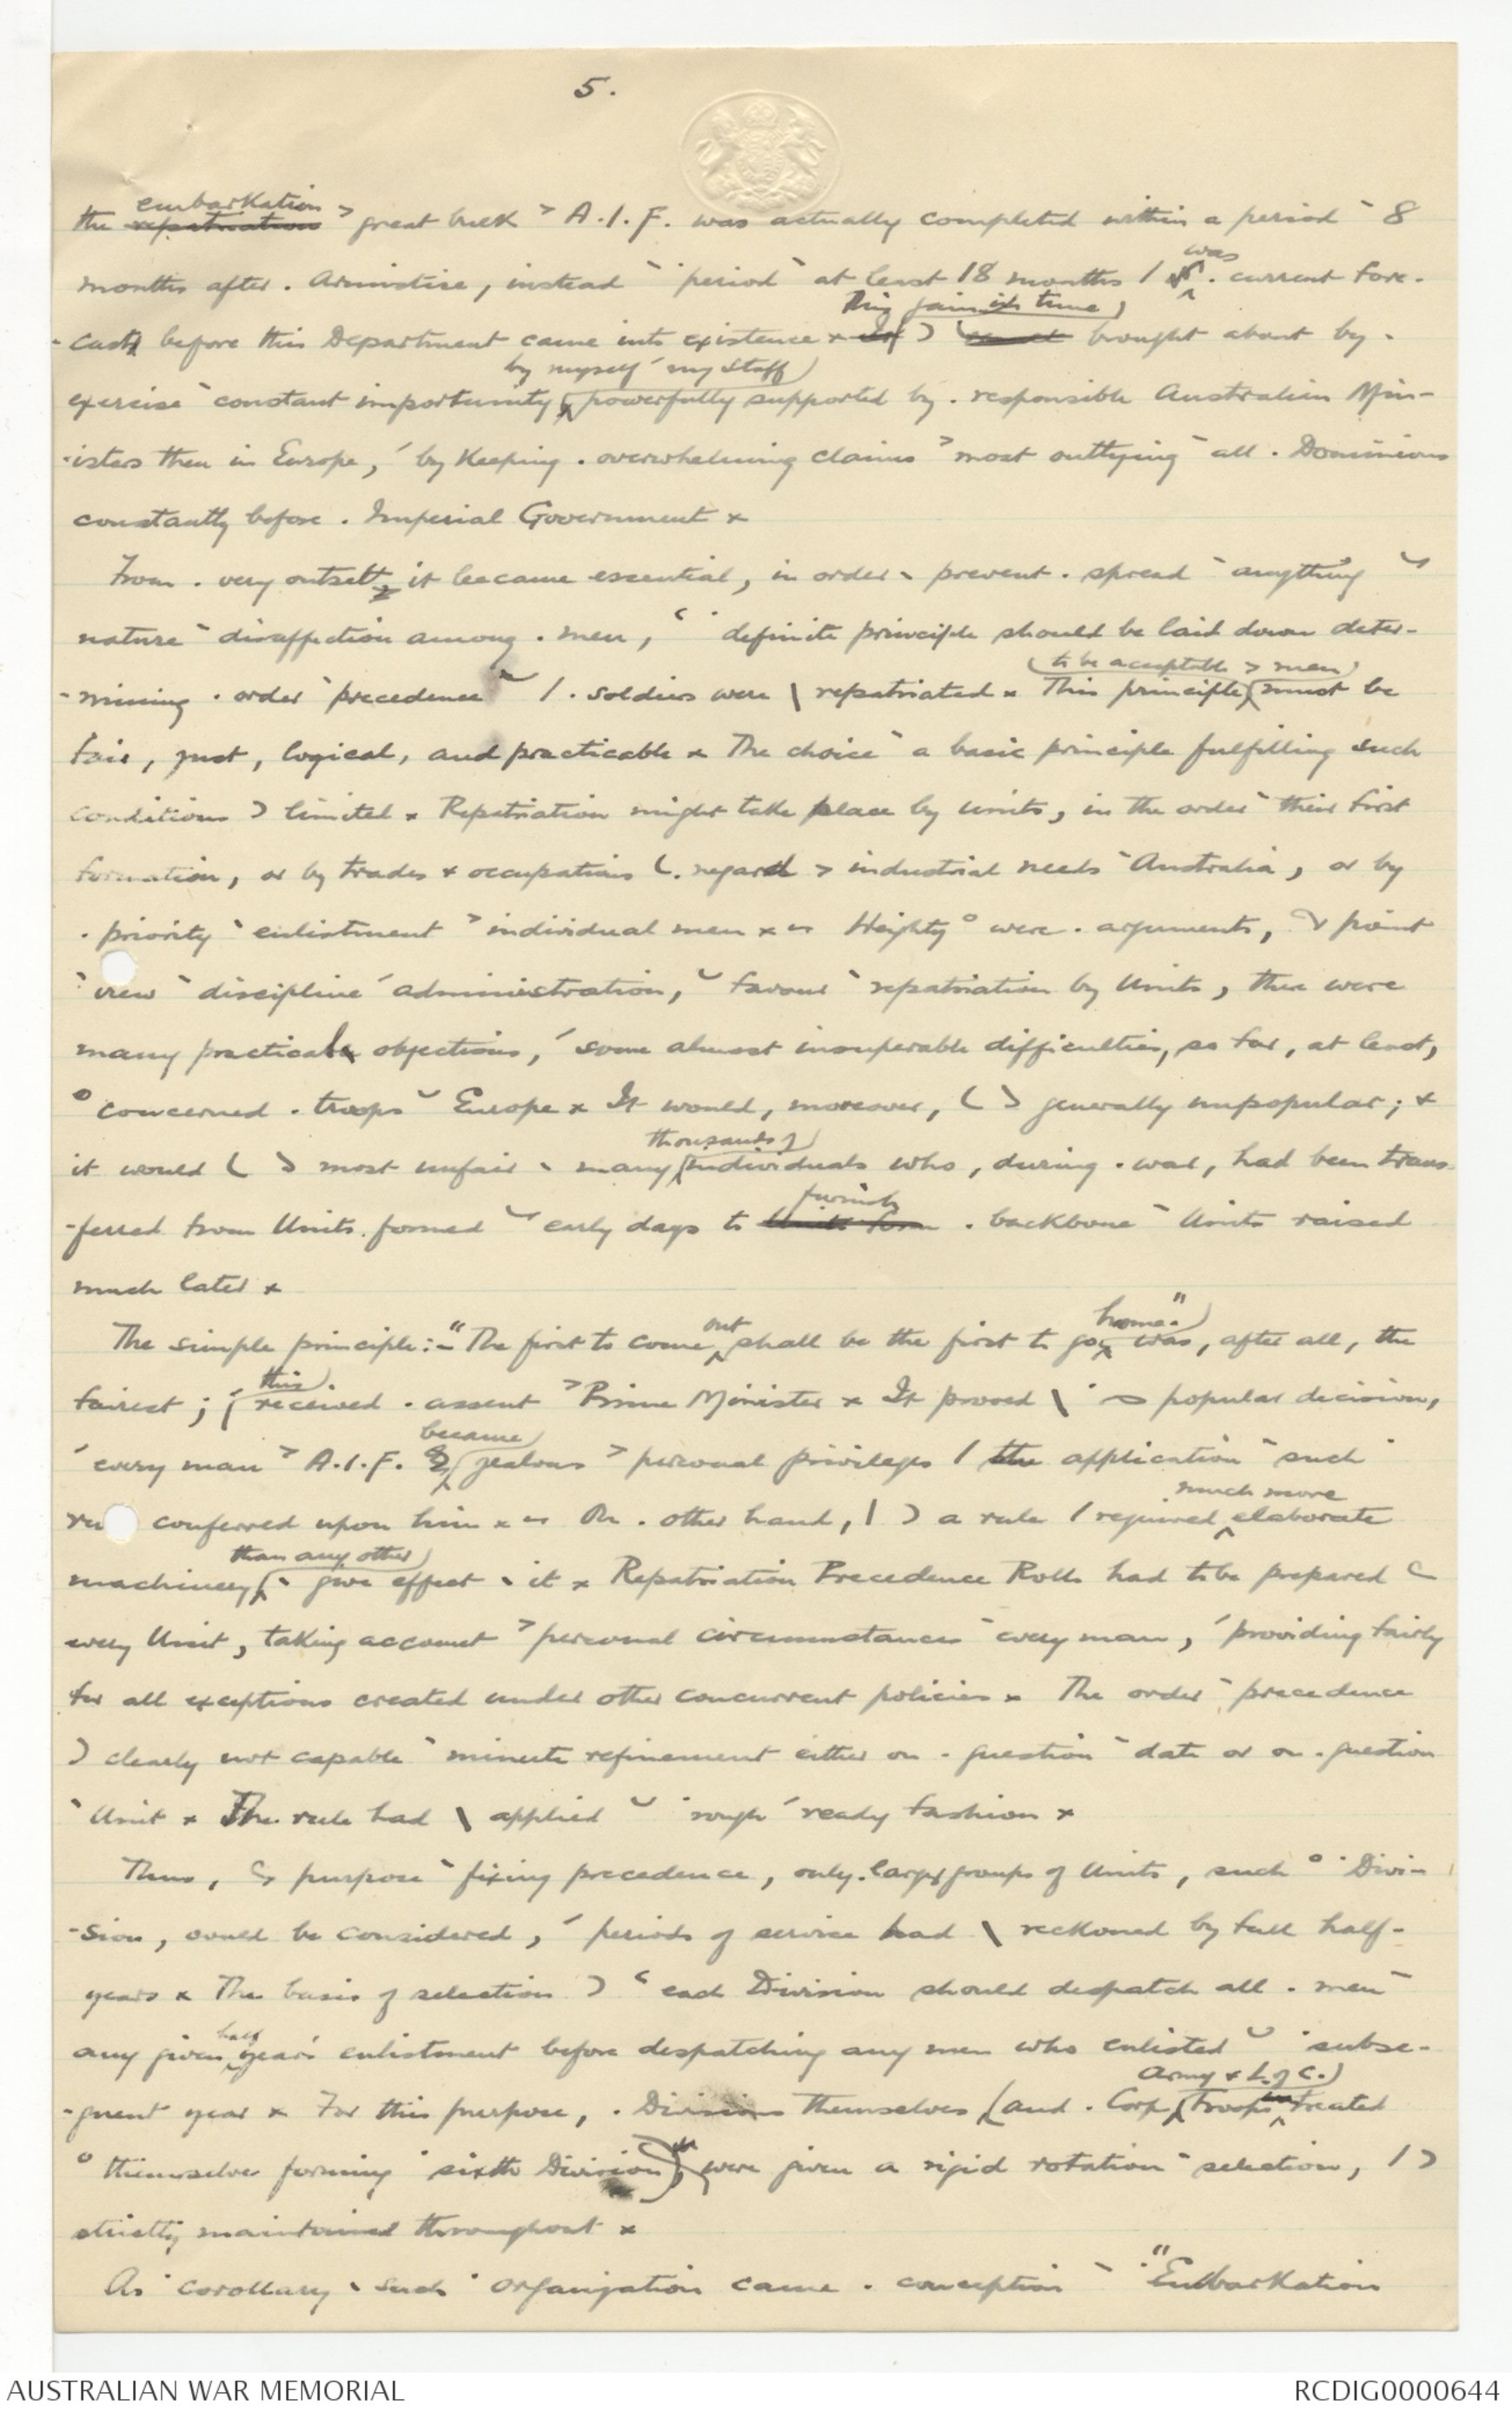 5.
the embarkation > great bulk > A.I.F. was actually completed within a period ` 8
months after . Armistice, instead ` ' period ` at least 18 months / was . current fore-
-cast before this Department came into existence x This gain in time ) brought about by .
exercise ` constant importunity by myself ' my Staff powerfully supported by . responsible Australian Min-
-isters then in Europe, ' by Keeping . overwhelming claims > most outlying ` all . Dominions
constantly before . Imperial Government x
From . very outset it became essential, in order ` prevent . spread ` anything ⌣
nature ` disaffection among . men, ' definite principle should be laid down deter-
-mining . order ` precedence ⌣ / . soldiers were \ repatriated x This principle (to be acceptable > men) must be
fair, just, logical, and practicable x The choice ` a basic principle fulfilling such
conditions ) limited x Repatriation might take place by Units, in the order ` their first
formation, or by trades & occupations (. regard > industrial needs ` Australia, or by
. priority ` enlistment > individual men x Weighty ° were . arguments, point
` view ` discipline ' administration, ⌣ favour ` repatriation by Units, there were
many practical objections, ' some almost insuperable difficulties, so far, at least,
° concerned . troops ⌣ Europe x It would, moreover, ( ) generally unpopular; &
it would ( ) most unfair ` many thousands of individuals who, during . war, had been trans-
-ferred from Units formed ⌣ early days to furnish . backbone ` Units raised
much later x
The simple principle:- "The first to come out shall be the first to go home" was, after all, the
fairest; ' this received . assent > Prime Minister x It proved \ ' popular decision,
' every man > A.I.F. became jealous > personal privileges / the application ` such '
ru conferred upon him x On . other hand, \ ) a rule / required much more elaborate
machinery than any other ` give effect ` it x Repatriation Precedence Rolls had to be prepared (
every Unit, taking account > personal circumstances ` every man, ' providing fairly
for all exceptions created under other concurrent policies x The order ` precedence
) clearly not capable ` minute refinement either on . question ` date or on . question
` Unit x The rule had \ applied ⌣ ' rough ' ready fashion x
Thus, purpose ` fixing precedence, only . large groups of Units, such ° ' Divi-
-sion, could be considered, ' periods of service had \ reckoned by full half-
years x The basis of selection ) ' each Division should despatch all . men `
any given half year's enlistment before despatching any men who enlisted ⌣ ' subse-
-quent year x For this purpose, . Divisions themselves (and . Corps, Army & L. of C.) Troops treated
° themselves forming ' sixth Division) were given a rigid rotation ` selection, / )
strictly maintained throughout x
As ' corollary ` such ' organization came . conception ` ' "Embarkation
AUSTRALIAN WAR MEMORIAL
RCDIG0000644